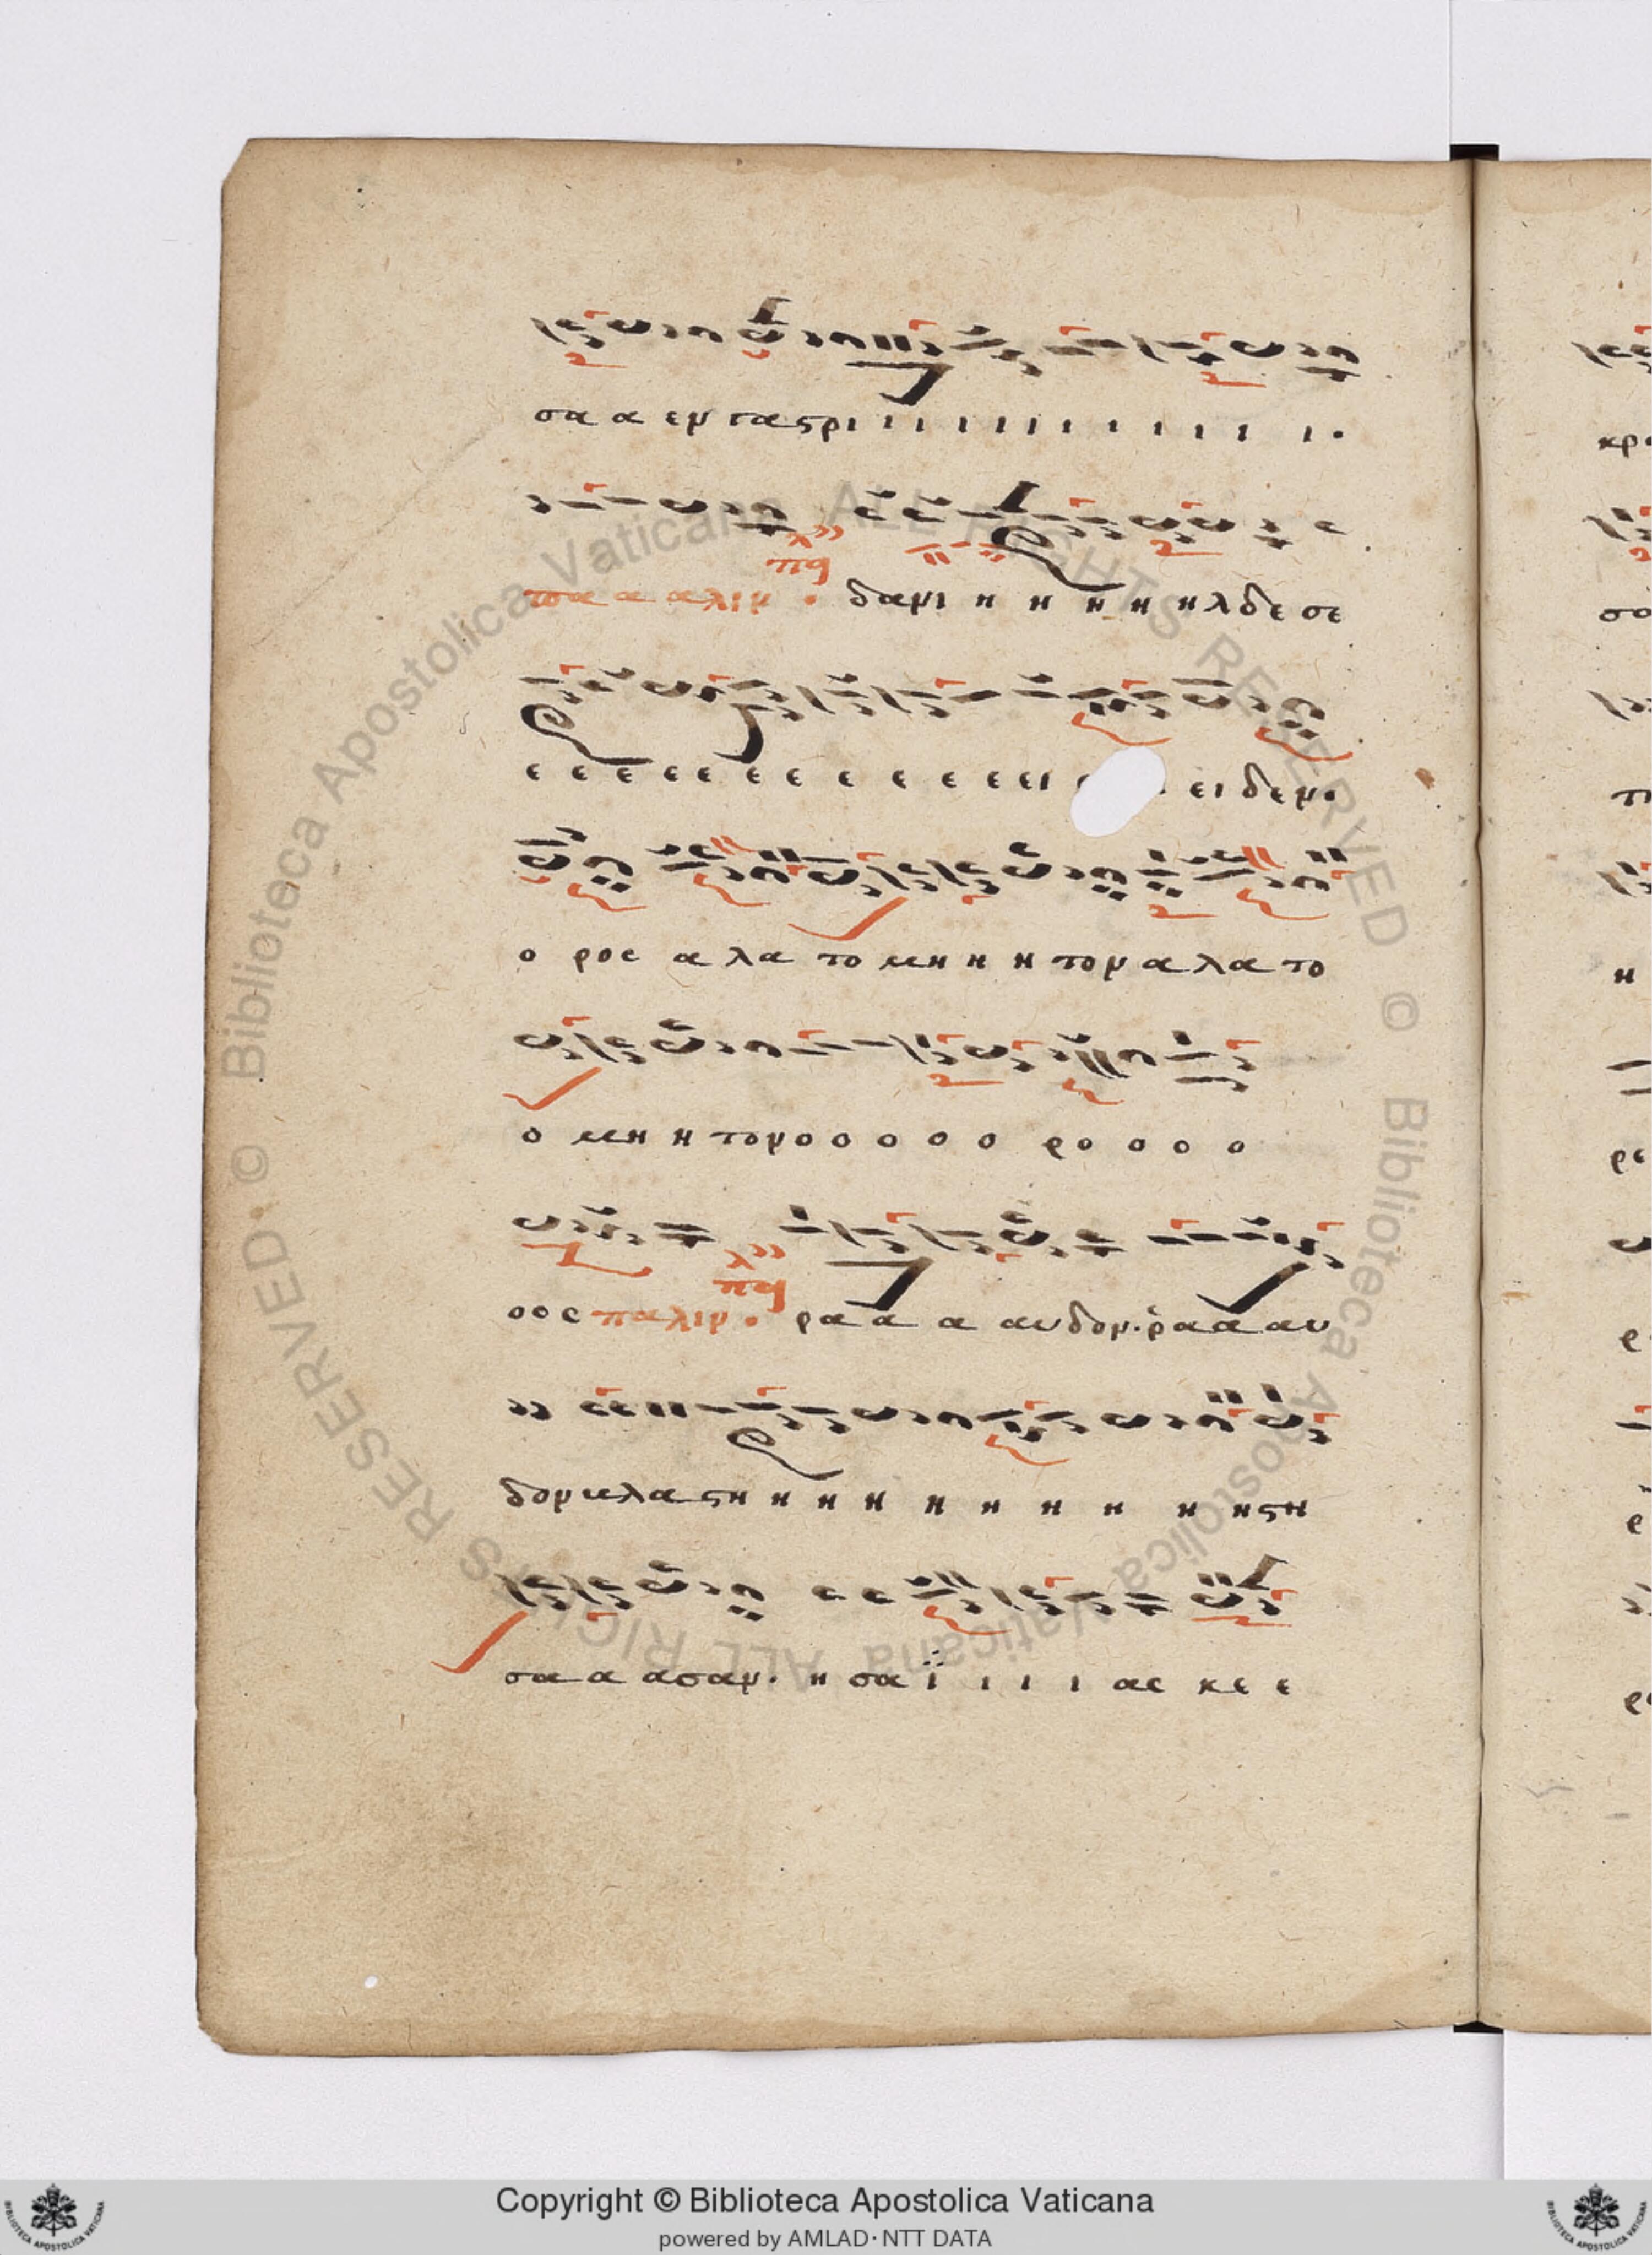 σα α εν γαστρι ι ι ι ι ι ι ι ι ι ι ι ι ·
πα α α λιν · δανι η η η η ηλ δε σε
ε ε ε ε ε ε ε ε ε ε ε ει ει δεν ·
ο ρος α λα το μη η η τον α λα το
ο μη η τον ο ο ο ο ο ο ρο ο ο ο
ο ος παλιν · ρα α α αυδον · ρα α αυ
δον βλαστη η η η η η η η η η στη
σα α ασαν · η σα ϊ ι ι ι ας κε ε
κρ
σο
τι
η
ρε
ρ
© Biblioteca Apostolica Vaticana ALL RIGHTS RESERVED © Biblioteca Apostolica Vaticana ALL RIGHTS RESERVED
Copyright © Biblioteca Apostolica Vaticana
powered by AMLAD·NTT DATA